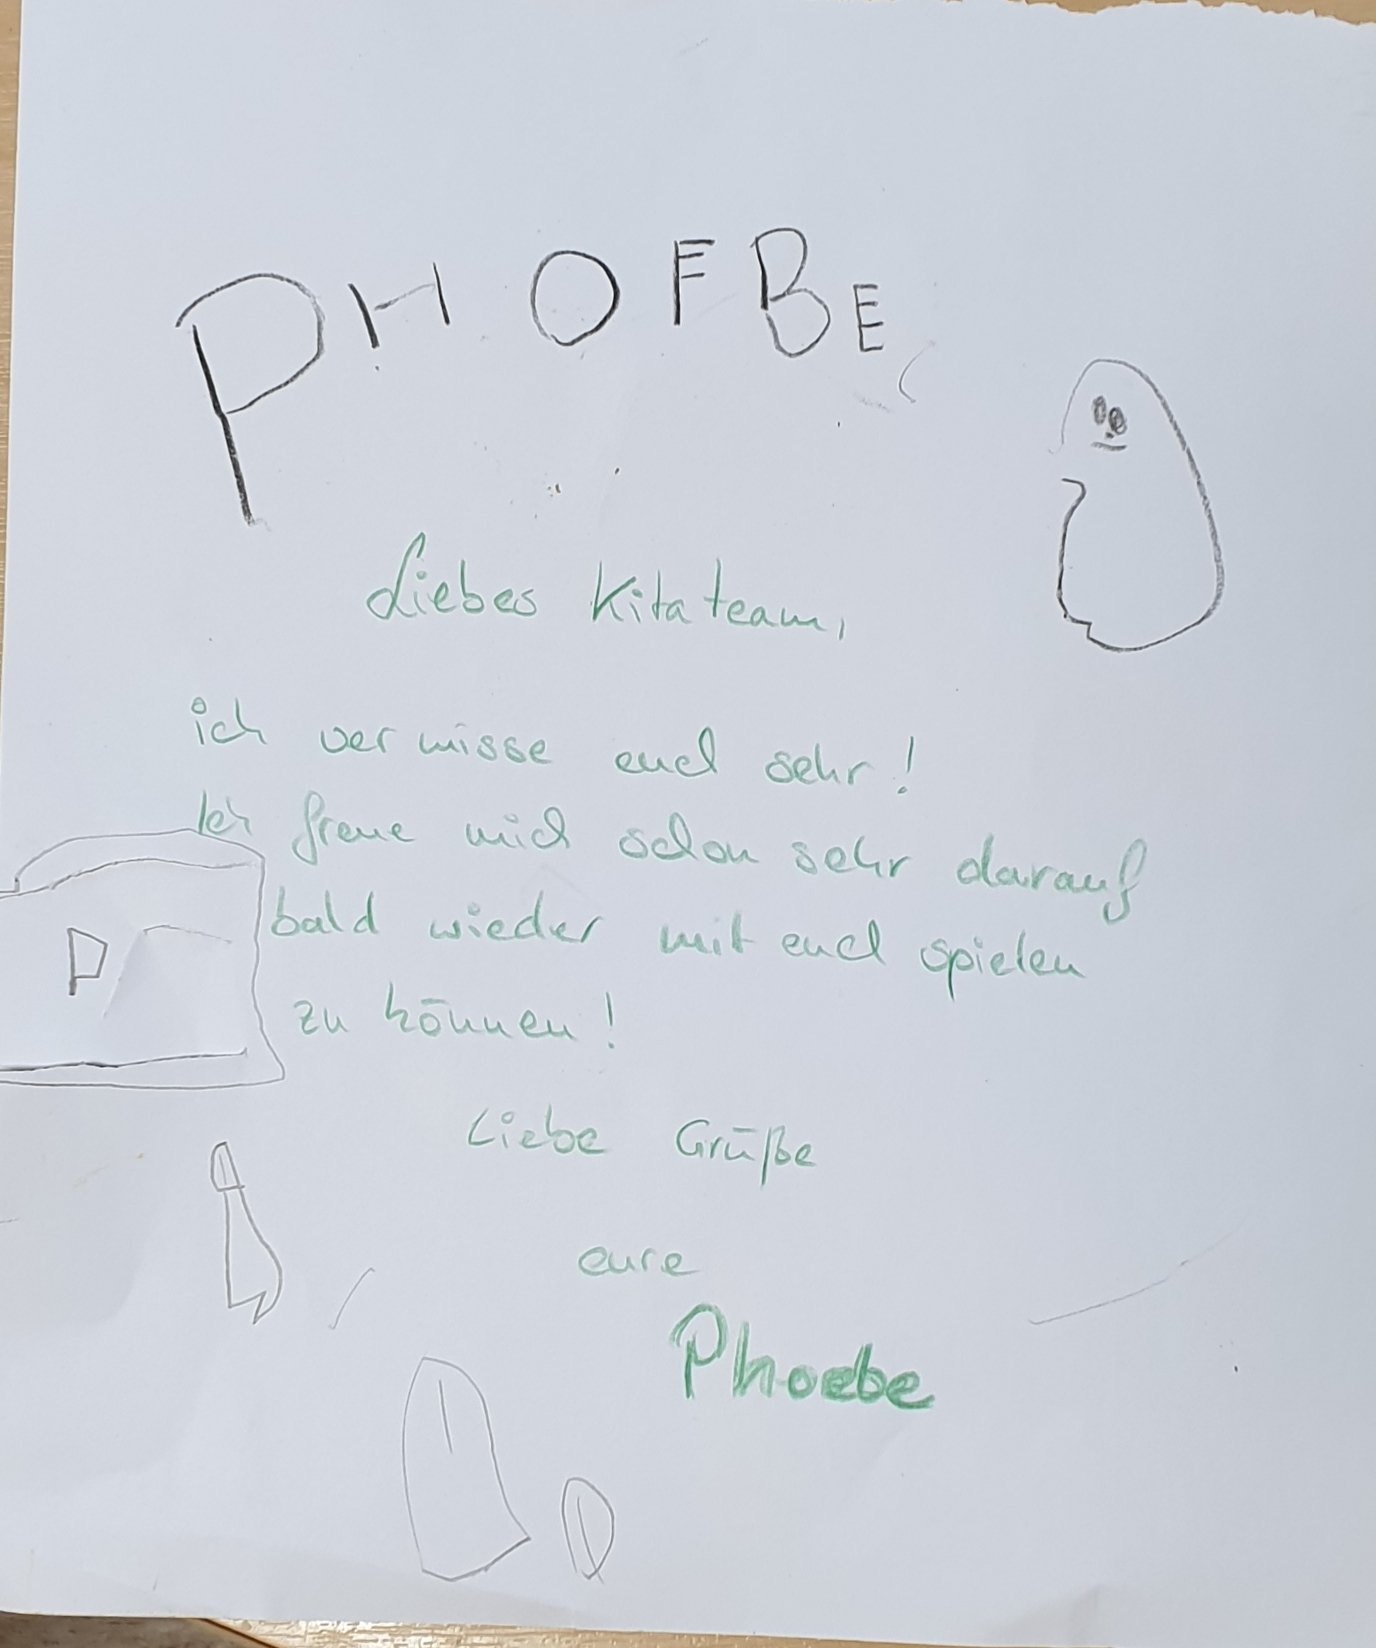 PHOFBE
Liebes Kitateam,
ich vermisse euch sehr!
Ich freue mich schon sehr darauf
bald wieder mit euch spielen
zu können!
P
Liebe Grüße
eure
Phoebe